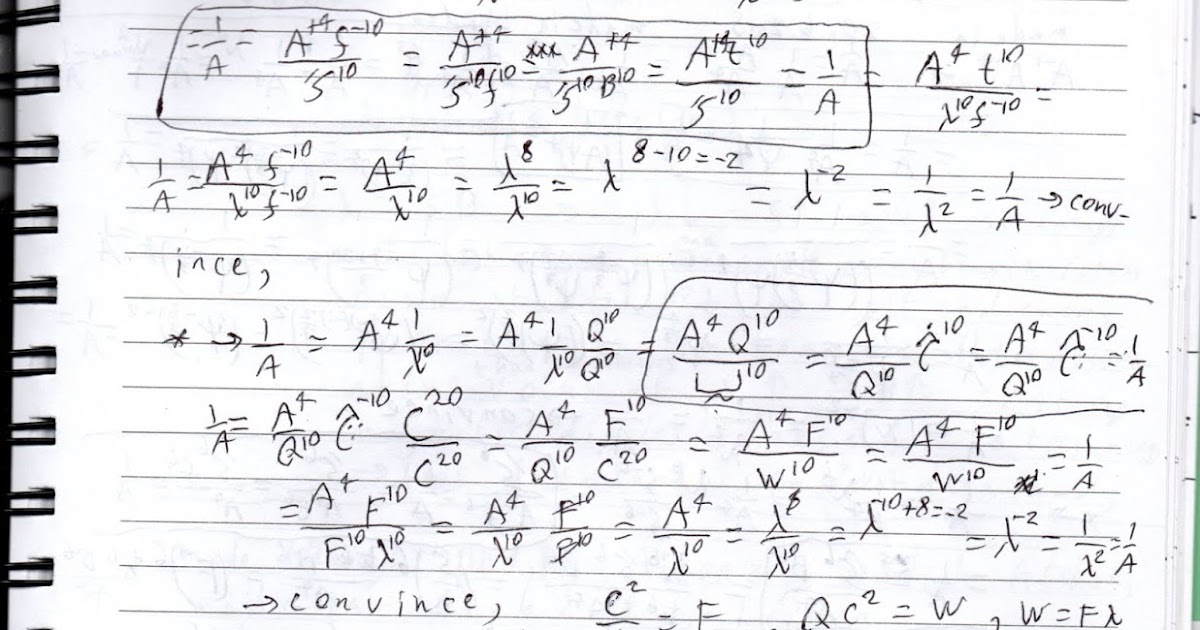 = 1/A = A^{+4} f^{-10} / ζ^{10} = A^{+4} / ζ^{10} f^{10} = A^{+4} / ζ^{10} B^{10} = A^{+4} t^{10} / ζ^{10} = 1/A = A^4 t^{10} / λ^{10} f^{-10} =
1/A = A^4 f^{-10} / λ^{10} f^{-10} = A^4 / λ^{10} = λ^8 / λ^{10} = λ^{8-10=-2} = λ^{-2} = 1/λ^2 = 1/A → conv-
ince,
* → 1/A = A^4 1/λ^{10} = A^4 1/λ^{10} Q^{10}/Q^{10} = A^4 Q^{10} / ^{10} = A^4/Q^{10} ^{10} = A^4/Q^{10} ^{-10} = 1/A
1/A = A^4/Q^{10} ^{-10} C^{20}/C^{20} = A^4/Q^{10} F^{10}/C^{20} = A^4 F^{10} / W^{10} = A^4 F^{10} / W^{10} = 1/A
= A^4 F^{10} / F^{10} λ^{10} = A^4/λ^{10} F^{10}/F^{10} = A^4/λ^{10} = λ^8/λ^{10} = λ^{-10+8=-2} = λ^{-2} = 1/λ^2 = 1/A
→ convince, C^2 = F, QC^2 = W, W = Fλ